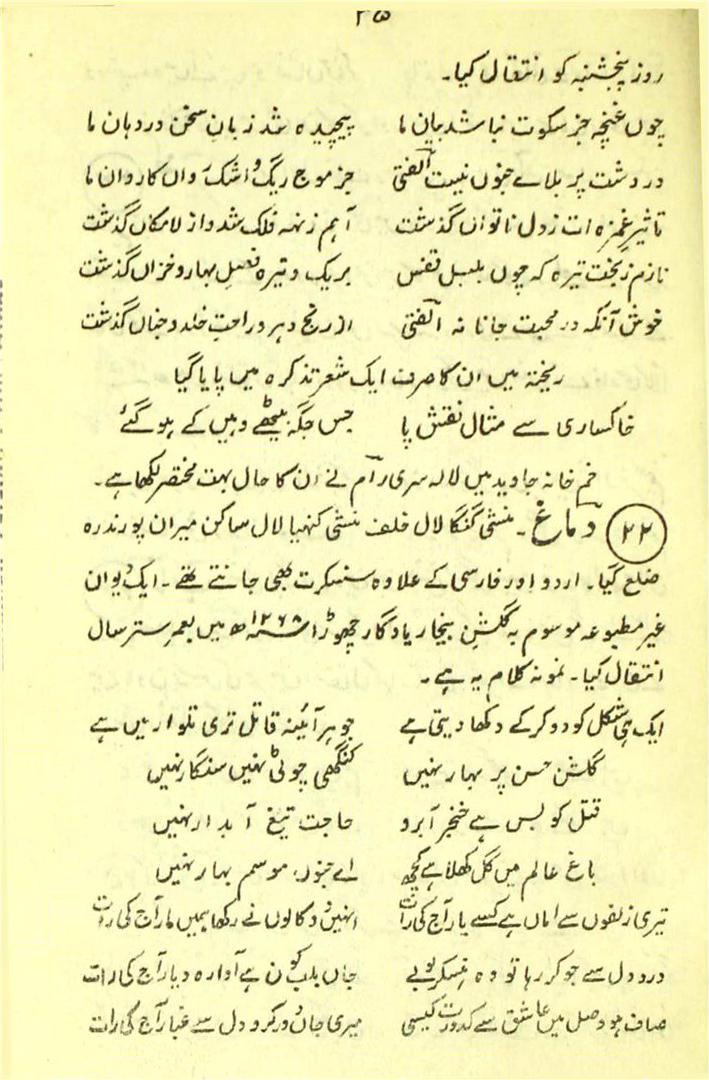 ۳۵
روز پنجشنبہ کو انتقال کیا۔
چوں غنچہ جز سکوت نباشد بیان ما پیچیدہ شد زبان سخن در دہان ما
در دشت پر بلاے جنوں نیست الفتی جز موج ریگ و اشک رواں کاروان ما
تاثیر غمزہ ات ز دل ناتواں گذشت آہم ز نہ فلک شد و از لامکاں گذشت
نازم ز بخت تیرہ کہ چوں بلبل قفس بریک وتیرہ فصل بہار و خزاں گذشت
خوش آنکہ در محبت جانانہ الفتی از رنج دہر و راحت خلد و جناں گذشت
ریختہ میں ان کا صرف ایک شعر تذکرہ میں پایا گیا
خاکساری سے مثال نقش پا جس جگہ بیٹھے وہیں کے ہو گئے
خم خانہ جاوید میں لالہ سری رام نے ان کا حال بہت مختصر لکھا ہے۔
(۲۲) دماغ۔ منشی گنگا لال خلف منشی کنہیا لال ساکن میران پور ندرہ
ضلع گیا۔ اردو اور فارسی کے علاوہ سنسکرت بھی جانتے تھے۔ ایک دیوان
غیر مطبوعہ موسوم بہ گلشن بیخار یادگار چھوڑا ۱۲۶۸ھ میں بعمر ستر سال
انتقال کیا۔ نمونہ کلام یہ ہے۔
ایک ہی شکل کو دو کر کے دکھا دیتی ہے جوہر آئینہ قاتل تری تلوار میں ہے
گلشن حسن پر بہار نہیں کنگھی چوٹی نہیں سنگار نہیں
قتل کو بس ہے خنجر آبرو حاجت تیغ آبدار نہیں
باغ عالم میں گل کھلا ہے کچھ اے جنوں، موسم بہار نہیں
تیری زلفوں سے اماں ہے کسے یار آج کی رات انہیں دو کالوں نے رکھا ہمیں مار آج کی رات
درد دل سے جو کرہا تو وہ ہنسکر بولے جاں بلب کون ہے آوارہ دیار آج کی رات
صاف ہو وصل میں عاشق سے کدورت کیسی میری جاں دور کرو دل سے غبار آج کی رات